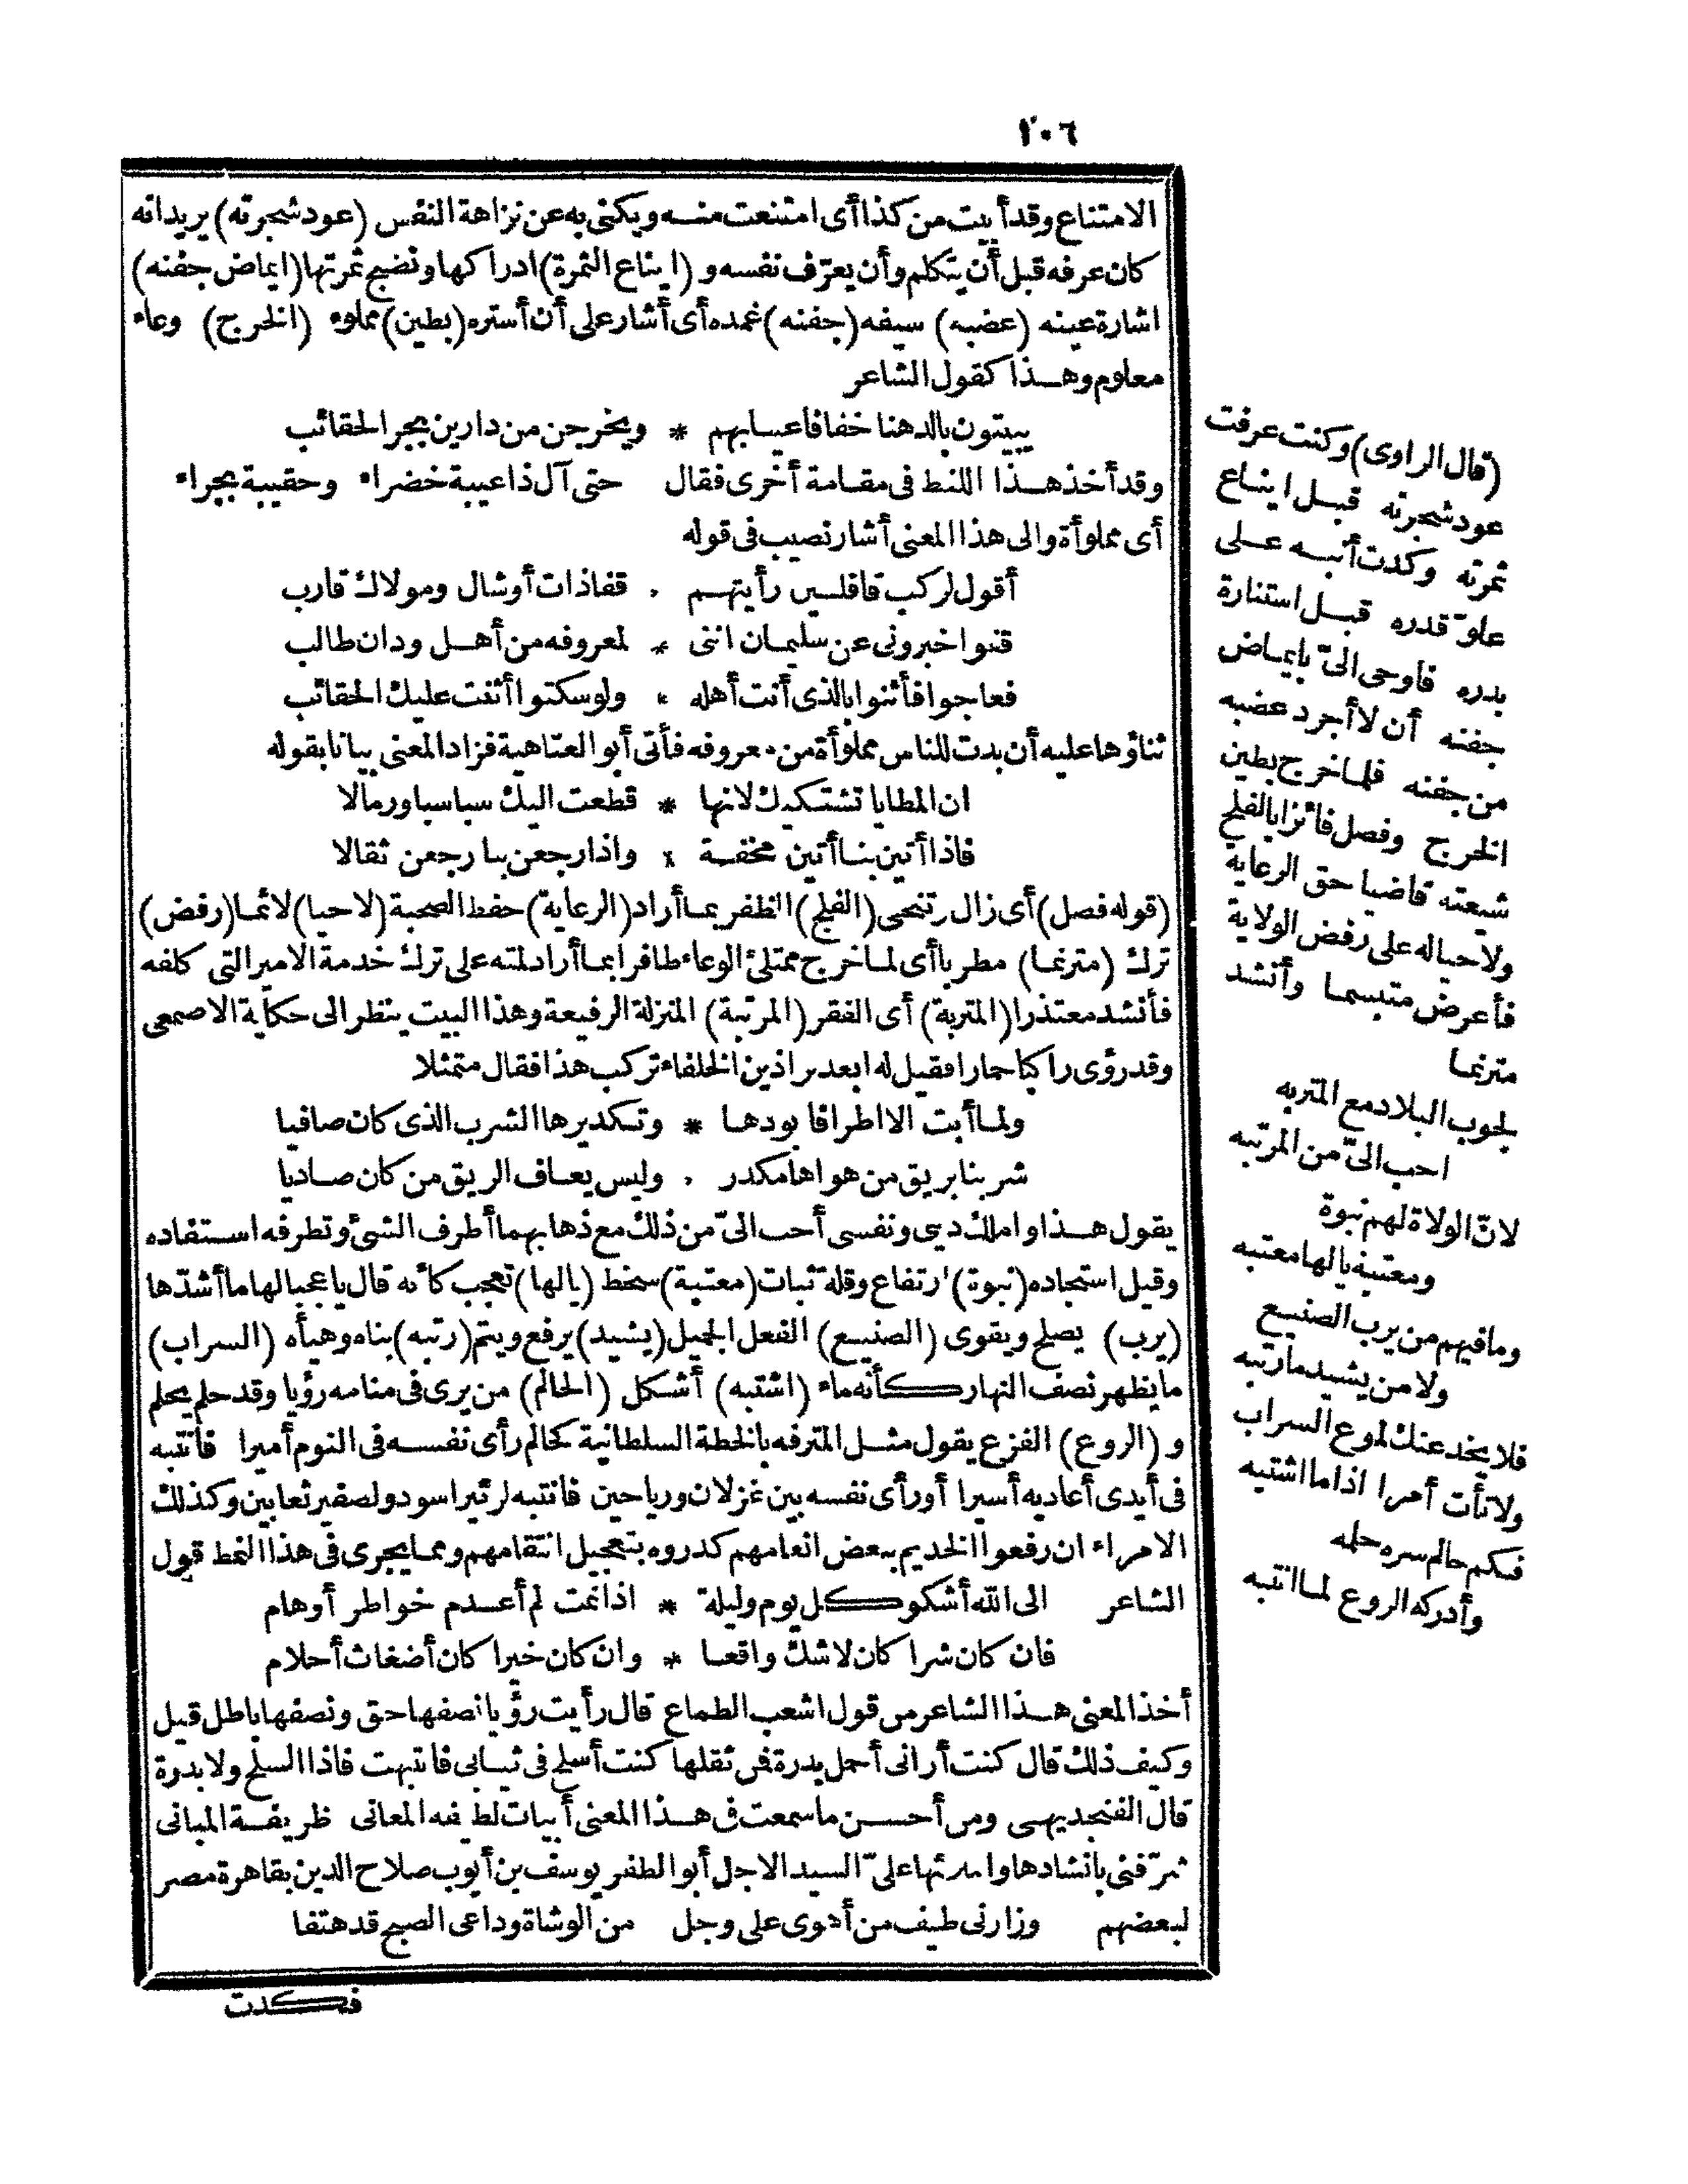 ٢٠٦
الامتناع وقد أبيت من كذا أى امتنعت منه ويكنى به عن نزاهة النفس (عود شجرته) يريد انه
كان عرفه قبل أن يتكلم وأن يعرّف نفسه و (ايناع الثمرة) ادراكها ونضج ثمرتها (ايماض جفنه)
اشارة عينه (عضبه) سيفه (جفنه) غمده أى أشار على أن أستره (بطين) مملوء (الخرج) وعاء
معلوم وهذا كقول الشاعر
يبيتون بالدهنا خفافا عيابهم * ويخرجن من دارين بجر الحقائب
وقد أخذ هذا اللنط فى مقامة أخرى فقال حتى آل ذا عيبة خضراء وحقيبة بجراء
أى مملوأة والى هذا المعنى أشار نصيب فى قوله
أقول لركب قافلين رأيتهم * قفا ذات أوشال ومولاك قارب
قنوا خبرونى عن سليمان اننى * لمعروفه من أهل ودان طالب
فعاجوا فأثنوا بالذى أنت أهله * ولو سكتوا أثنت عليك الحقائب
ثناؤها عليه أن بدت للناس مملوأة من معروفه فأتى أبو العتاهية فزاد المعنى بيانا بقوله
ان المطايا تشتكيك لانها * قطعت اليك سباسبا ورمالا
فاذا أتين بنا أتين مخفة * واذا رجعن بنا رجعن ثقالا
(قوله فصل) أى زال وتنحى (الفلج) الظفر بما أراد (الرعاية) حفظ الصحبة (لاحيا) لائما (رفض)
ترك (مترنما) مطربا أى لما خرج ممتلئ الوعاء ظافرا بما أراد لمته على ترك خدمة الامير التى كلفه
فأنشد معتذرا (المتربة) أى الفقر (المرتبة) المنزلة الرفيعة وهذا البيت ينظر الى حكاية الاصمعى
وقد رؤى راكبا حمارا فقيل له ابعد براذين الخلفاء تركب هذا فقال متمثلا
ولما أبت الا اطرافا بودها * وتكديرها الشرب الذى كان صافيا
شربنا بريق من هواها مكدر * وليس يعاف الريق من كان صاديا
يقول هذا واملك دينى ونفسى أحب الىّ من ذلك مع ذهابهما أطرف الشئ وتطرفه استفاده
وقيل استجاده (نبوة) ارتفاع وقلة ثبات (معتبة) سخط (يالها) تعجب كأنه قال يا عجبا لها ما أشدّها
(يرب) يصلح ويقوى (الصنيع) الفعل الجميل (يشيد) يرفع ويتم (رتبه) بناه وهيأه (السراب)
ما يظهر نصف النهار كأنه ماء (اشتبه) أشكل (الحالم) من يرى فى منامه رؤيا وقد حلم يحلم
و (الروع) الفزع يقول مثل المترفه بالخطة السلطانية كحالم رأى نفسه فى النوم أميرا فانتبه
فى أيدى أعاديه أسيرا أو رأى نفسه بين غزلان ورياحين فانتبه لزئير اسود ولصفير ثعابين وكذلك
الامراء ان رفعوا الخديم ببعض انعامهم كدروه بتعجيل انتقامهم ومما يجرى فى هذا النمط قول
الشاعر الى الله أشكو كل يوم وليلة * اذا نمت لم أعدم خواطر أوهام
فان كان شرا كان لا شك واقعا * وان كان خيرا كان أضغاث أحلام
أخذ المعنى هذا الشاعر من قول اشعب الطماع قال رأيت رؤيا نصفها حق ونصفها باطل قيل
وكيف ذلك قال كنت أرانى أحمل بدرة فمن ثقلها كنت أسلح فى ثيابى فانتبهت فاذا السلح ولا بدرة
قال الفنجديهى ومن أحسن ما سمعت فى هذا المعنى أبيات لطيفه المعانى ظريفة المبانى
شرّفنى بانشادها واملائها علىّ السيد الاجل أبو الظفر يوسف بن أيوب صلاح الدين بقاهرة مصر
لبعضهم وزارنى طيف من أهوى على وجل من الوشاة وداعى الصبح قد هتفا
فكدت
(قال الراوى) وكنت عرفت
عود شجرته قبل ايناع
ثمرته وكدت أنبه على
علوّ قدره قبل استنارة
بدره فاوحى الىّ بايماض
جفنه أن لا أجرد عضبه
من جفنه فلما خرج بطين
الخرج وفصل فائزا بالفلج
شيعته قاضيا حق الرعاية
ولاحيا له على رفض الولاية
فأعرض متبسما وأنشد
مترنما
لجوب البلاد مع المتربه
احب الىّ من المرتبه
لانّ الولاة لهم نبوة
ومعتبة يالها معتبه
وما فيهم من يرب الصنيع
ولا من يشيد ما رتبه
فلا يخدعنك لموع السراب
ولا تأت أمرا اذا ما اشتبه
فكم حالم سره حلمه
وأدركه الروع لما انتبه